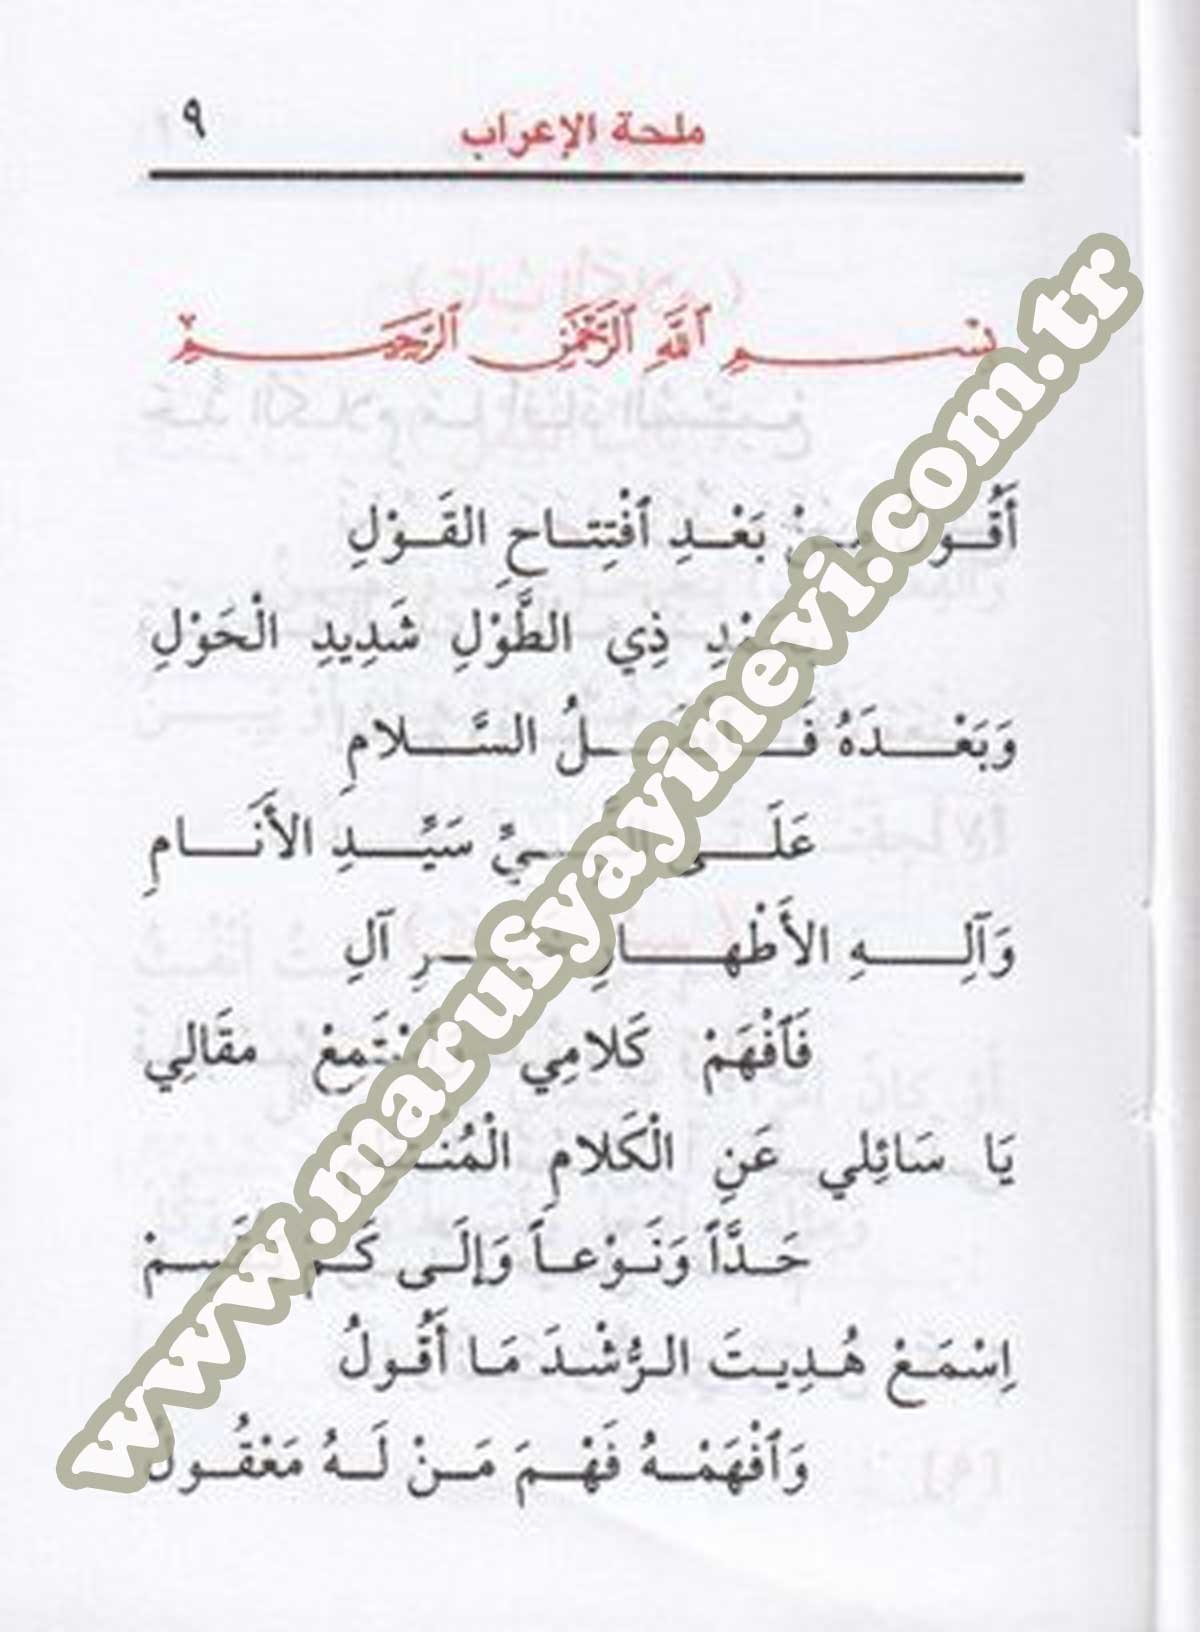 ملحة الإعراب ٩
بِسْمِ ٱللَّهِ ٱلرَّحْمَٰنِ ٱلرَّحِيمِ
أَقُولُ مِنْ بَعْدِ ٱفْتِتاحِ القَوْلِ
بِحَمْدِ ذِي الطَّوْلِ شَدِيدِ الْحَوْلِ
وَبَعْدَهُ فَأَفْضَلُ السَّلامِ
عَلَى النَّبِيِّ سَيِّدِ الأَنَامِ
وَآلِهِ الأَطْهارِ خَيْرِ آلِ
فَٱفْهَمْ كَلامِي وَٱسْتَمِعْ مقَالِي
يَا سَائِلي عَنِ الْكَلامِ الْمُنْتَظِمْ
حَدَّاً وَنَوْعاً وَإِلَى كَمْ يَنْقَسِمْ
اِسْمَعْ هُدِيتَ الرُّشْدَ مَا أَقُولُ
وَٱفْهَمْهُ فَهْمَ مَنْ لَهُ مَعْقُولُ
www.marufyayinevi.com.tr